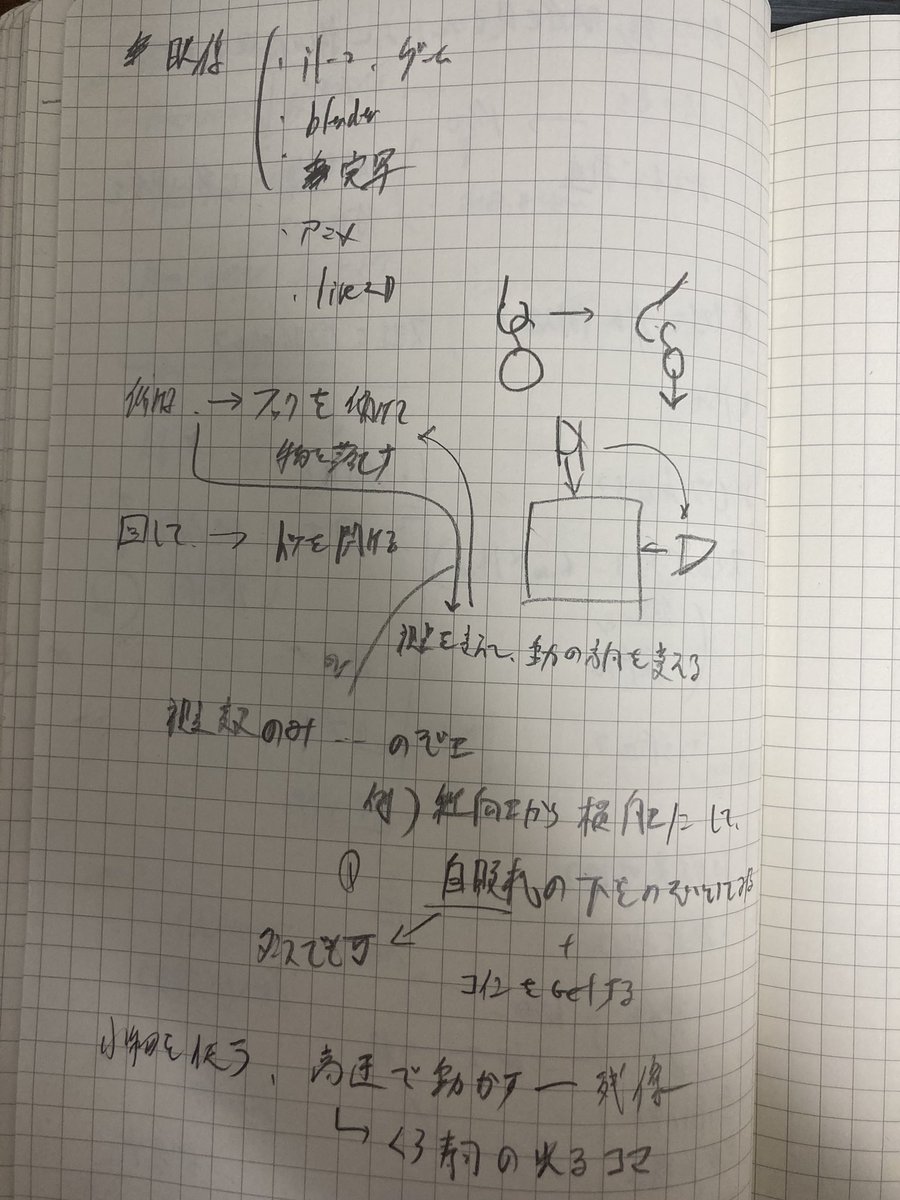 映像 ・ ゲーム
・blender
・実写
・アニメ
・live2D
→ フックを傾けて
物を落とす
回して → ドアを開ける
視点を変えて、動の方向を変える
視点変更のみ … のぞく
例) 縦向きから横向きにして、
① 自販機の下をのぞいてみる
でも可
+
コインをGetする
小物を使う、高速で動かす ー 残像
↳ くら寿司の光るコマ